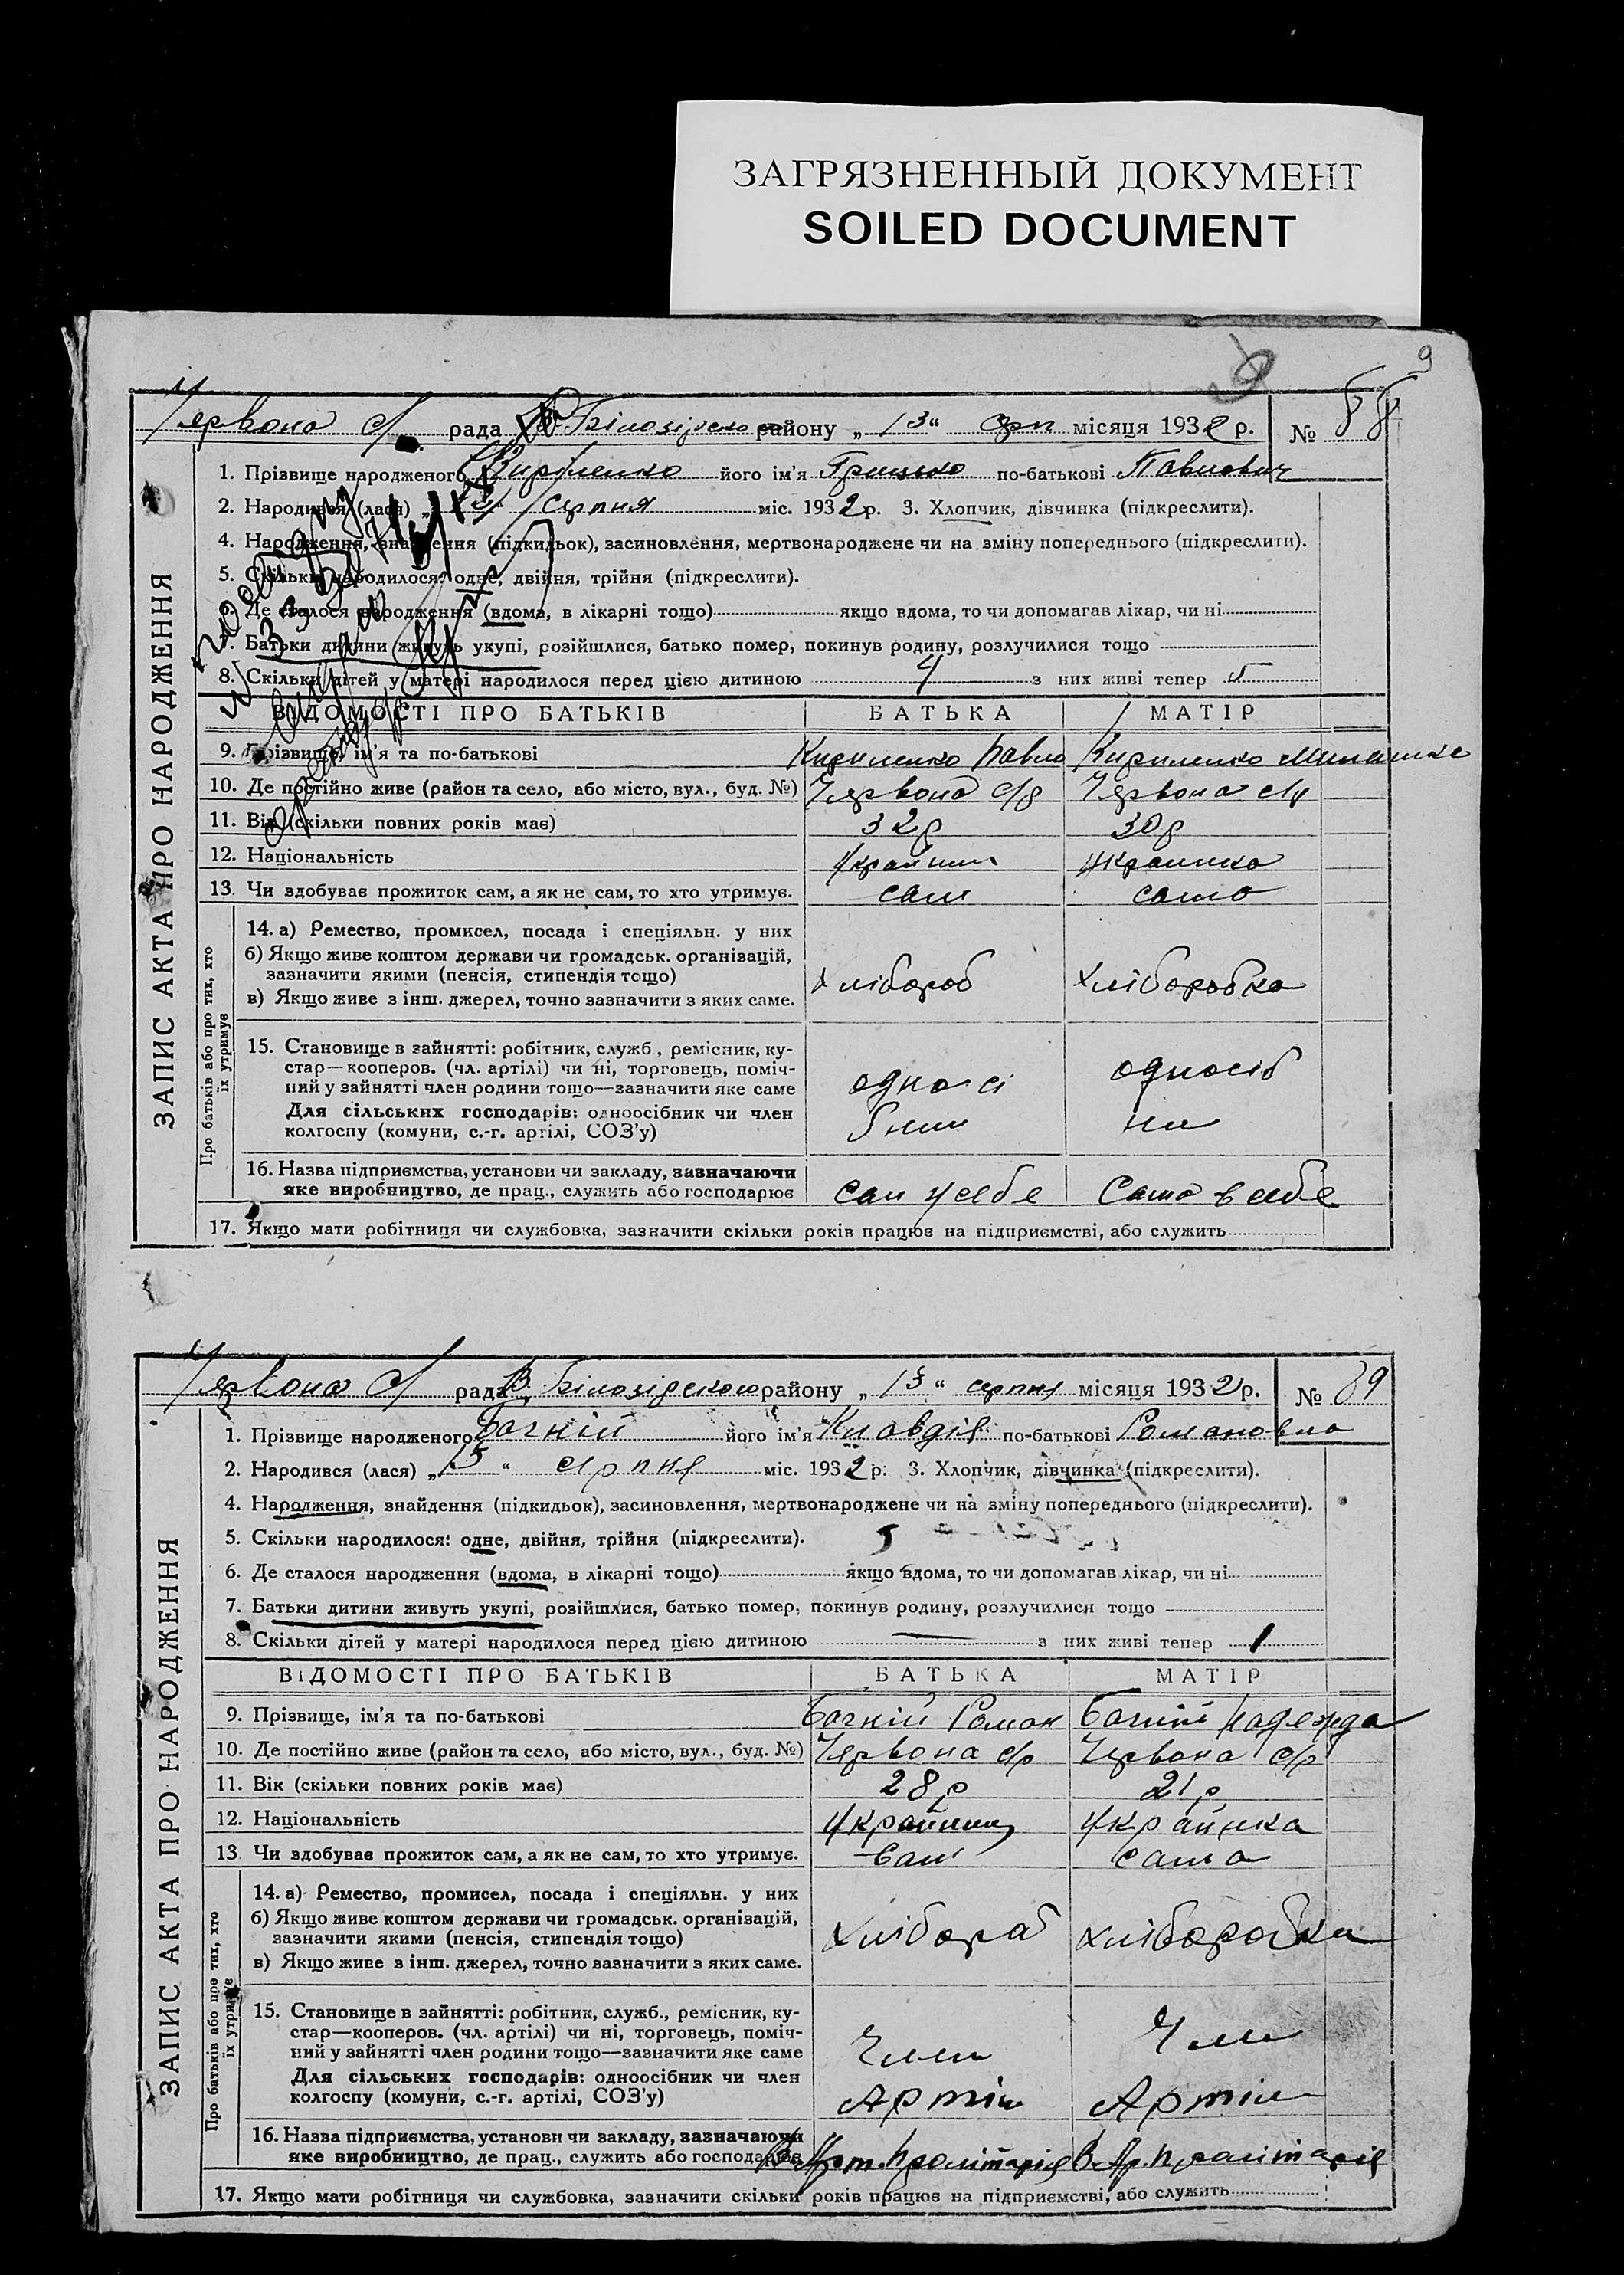 ЗАГРЯЗНЕННЫЙ ДОКУМЕНТ
SOILED DOCUMENT
9
Червона с/ рада Білозірського району „13“ серп місяця 1932 р. № 88
ЗАПИС АКТА ПРО НАРОДЖЕННЯ
1. Прізвище народженого Кириленко його ім'я Грицько по-батькові Павлович
2. Народився (лася) „ серпня міс. 1932 р. 3. Хлопчик, дівчинка (підкреслити).
4. Народження, знайдення (підкидьок), засиновлення, мертвонароджене чи на зміну попереднього (підкреслити).
5. Скільки народилося: одне, двійня, трійня (підкреслити).
6. Де сталося народження (вдома, в лікарні тощо) якщо вдома, то чи допомагав лікар, чи ні
7. Батьки дитини живуть укупі, розійшлися, батько помер, покинув родину, розлучилися тощо
8. Скільки дітей у матері народилося перед цією дитиною 4 з них живі тепер 5
ВІДОМОСТІ ПРО БАТЬКІВ БАТЬКА МАТІР
9. Прізвище, ім'я та по-батькові Кириленко Павло Кириленко
10. Де постійно живе (район та село, або місто, вул., буд. №) Червона с/р Червона с/р
11. Вік (скільки повних років має) 32 р 30 р
12. Національність Українец Українка
13. Чи здобуває прожиток сам, а як не сам, то хто утримує. сам сама
Про батьків або про тих, хто їх утримує
14. а) Ремество, промисел, посада і спеціяльн. у них
б) Якщо живе коштом держави чи громадськ. організацій,
зазначити якими (пенсія, стипендія тощо) Хлібороб Хліборобка
в) Якщо живе з інш. джерел, точно зазначити з яких саме.
15. Становище в зайнятті: робітник, служб., ремісник, ку-
стар—кооперов. (чл. артілі) чи ні, торговець, поміч- односі односіб
ний у зайнятті член родини тощо—зазначити яке саме
Для сільських господарів: одноосібник чи член бник
колгоспу (комуни, с.-г. артілі, СОЗ'у)
16. Назва підприємства, установи чи закладу, зазначаючи
яке виробництво, де прац., служить або господарює сам у себе Сама в себе
17. Якщо мати робітниця чи службовка, зазначити скільки років працює на підприємстві, або служить
Червона с/ рада В. Білозірського району „13“ серпня місяця 1932 р. № 89
ЗАПИС АКТА ПРО НАРОДЖЕННЯ
1. Прізвище народженого Бачній його ім'я Клавдія по-батькові Романовна
2. Народився (лася) „13“ серпня міс. 1932 р. 3. Хлопчик, дівчинка (підкреслити).
4. Народження, знайдення (підкидьок), засиновлення, мертвонароджене чи на зміну попереднього (підкреслити).
5. Скільки народилося: одне, двійня, трійня (підкреслити).
6. Де сталося народження (вдома, в лікарні тощо) якщо вдома, то чи допомагав лікар, чи ні
7. Батьки дитини живуть укупі, розійшлися, батько помер, покинув родину, розлучилися тощо
8. Скільки дітей у матері народилося перед цією дитиною — з них живі тепер 1
ВІДОМОСТІ ПРО БАТЬКІВ БАТЬКА МАТІР
9. Прізвище, ім'я та по-батькові Бачній Роман Бачній Надежда
10. Де постійно живе (район та село, або місто, вул., буд. №) Червона с/р Червона с/р
11. Вік (скільки повних років має) 28 р 21 р
12. Національність Українец Українка
13. Чи здобуває прожиток сам, а як не сам, то хто утримує. Сам сама
Про батьків або про тих, хто їх утримує
14. а) Ремество, промисел, посада і спеціяльн. у них
б) Якщо живе коштом держави чи громадськ. організацій,
зазначити якими (пенсія, стипендія тощо) Хлібороб Хліборобка
в) Якщо живе з інш. джерел, точно зазначити з яких саме.
15. Становище в зайнятті: робітник, служб., ремісник, ку-
стар—кооперов. (чл. артілі) чи ні, торговець, поміч- Член Член
ний у зайнятті член родини тощо—зазначити яке саме
Для сільських господарів: одноосібник чи член
колгоспу (комуни, с.-г. артілі, СОЗ'у) Артіл Артіл
16. Назва підприємства, установи чи закладу, зазначаючи
яке виробництво, де прац., служить або господарює В Арт. Пролітарія В Ар. Пролітарія
17. Якщо мати робітниця чи службовка, зазначити скільки років працює на підприємстві, або служить